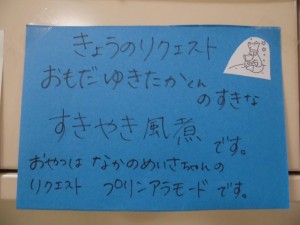 きょうのリクエスト
おもだゆきたかくん
のすきな
すきやき風煮 です。
おやつは なかのめいさちゃんの
リクエスト プリンアラモード です。